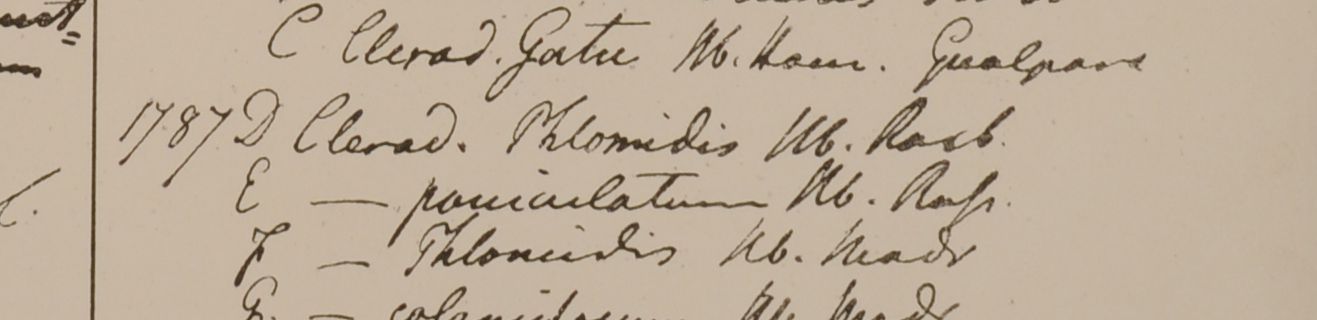 C Clerod. Gatu Hb. Ham. Gualpara
1787 D Clerod. Phlomidis Hb. Roxb.
E — paniculatum Hb.
F — Phlomidis Hb. Madr
G. — Hb. Madr